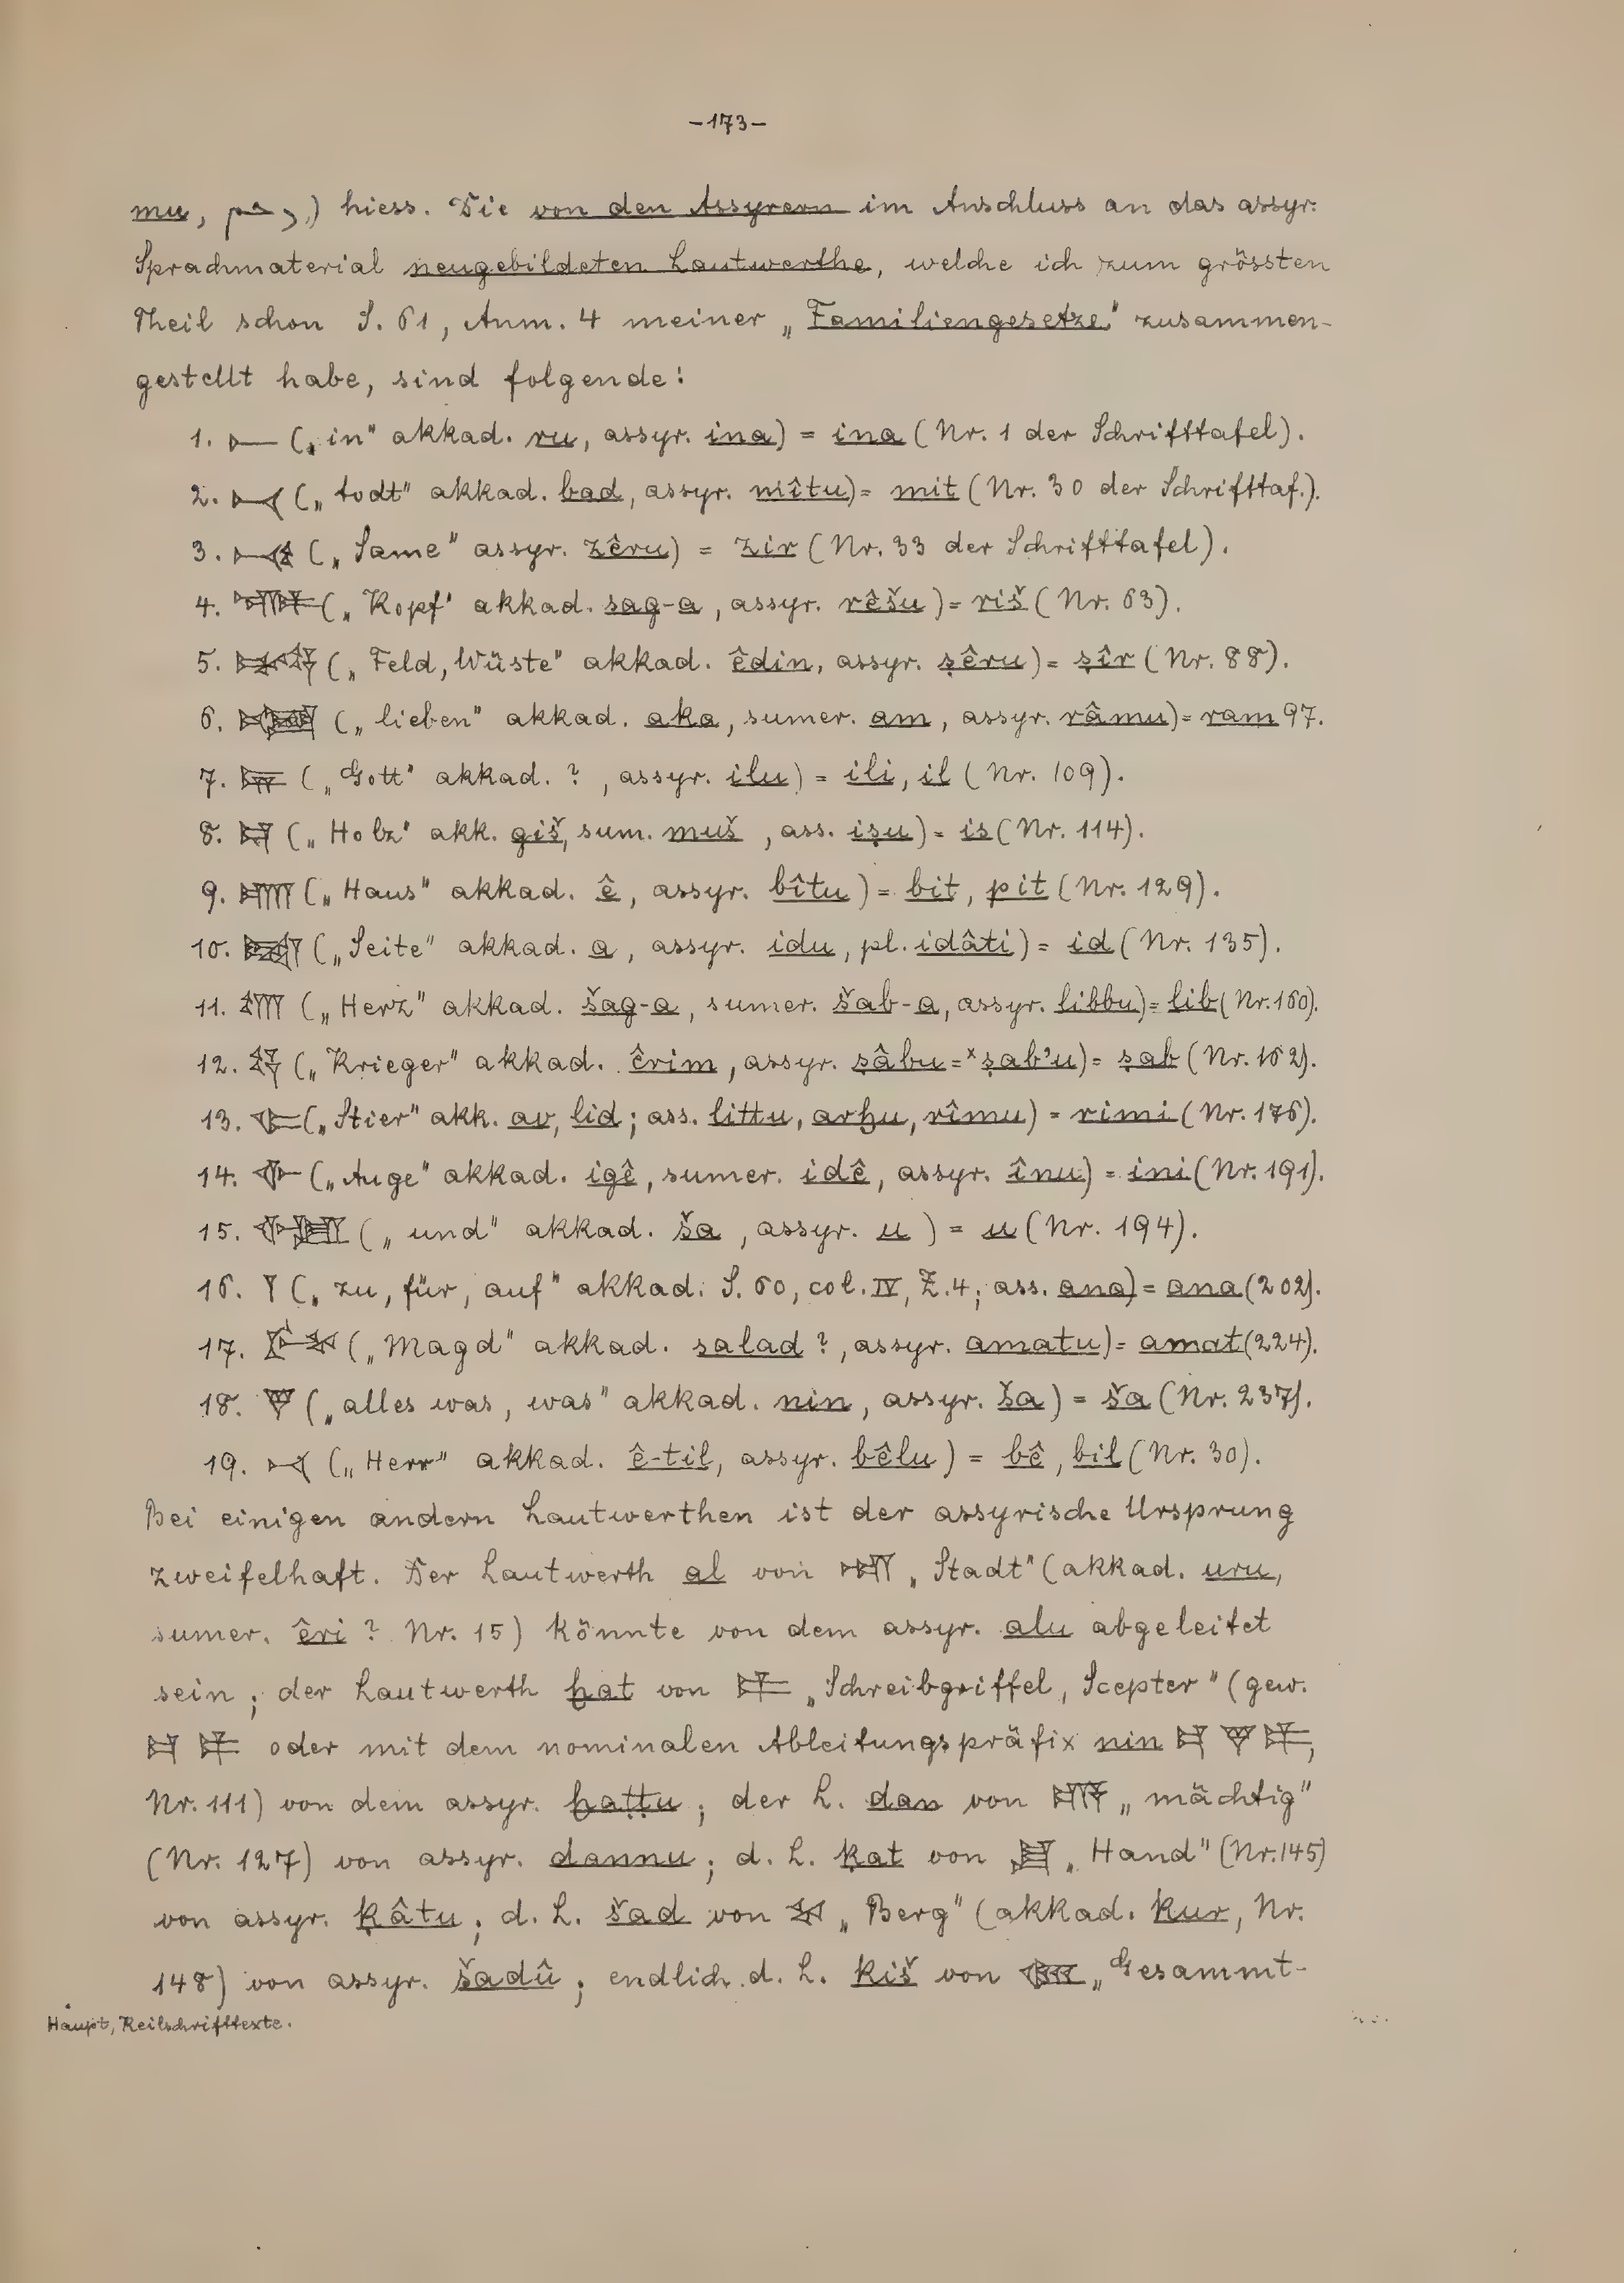 -173-
mu, ) hiess. Die von den Assyrern im Anschluss an das assyr.
Sprachmaterial neugebildeten Lautwerthe, welche ich zum grössten
Theil schon S. 61, Anm. 4 meiner „Familiengesetze" zusammen-
gestellt habe, sind folgende:
1. 𒀸 („in" akkad. ru, assyr. ina) = ina (Nr. 1 der Schrifttafel).
2. 𒁁 („todt" akkad. bad, assyr. mîtu) = mit (Nr. 30 der Schrifttaf.).
3. („Same" assyr. zêru) = zir (Nr. 33 der Schrifttafel).
4. („Kopf" akkad. sag-a, assyr. rêšu) = riš (Nr. 63).
5. („Feld, Wüste" akkad. êdin, assyr. ṣêru) = ṣîr (Nr. 88).
6. („lieben" akkad. aka, sumer. am, assyr. râmu) = ram 97.
7. („Gott" akkad. ?, assyr. ilu) = ili, il (Nr. 109).
8. („Holz" akk. giš, sum. muš, ass. iṣu) = is (Nr. 114).
9. („Haus" akkad. ê, assyr. bîtu) = bit, pit (Nr. 129).
10. („Seite" akkad. a, assyr. idu, pl. idâti) = id (Nr. 135).
11. („Herz" akkad. šag-a, sumer. šab-a, assyr. libbu) = lib (Nr. 160).
12. („Krieger" akkad. êrim, assyr. ṣâbu = ˣṣab’u) = ṣab (Nr. 162).
13. („Stier" akk. av, lid; ass. littu, arḫu, rîmu) = rimi (Nr. 176).
14. („Auge" akkad. igê, sumer. idê, assyr. înu) = ini (Nr. 191).
15. („und" akkad. ša, assyr. u) = u (Nr. 194).
16. 𒁹 („zu, für, auf" akkad. S. 60, col. IV, Z. 4; ass. ana) = ana (202).
17. („Magd" akkad. salad ?, assyr. amatu) = amat (224).
18. 𒃻 („alles was, was" akkad. nin, assyr. ša) = ša (Nr. 237).
19. 𒁁 („Herr" akkad. ê-til, assyr. bêlu) = bê, bil (Nr. 30).
Bei einigen andern Lautwerthen ist der assyrische Ursprung
zweifelhaft. Der Lautwerth al von „Stadt" (akkad. uru,
sumer. êri ? Nr. 15) könnte von dem assyr. alu abgeleitet
sein; der Lautwerth ḫat von „Schreibgriffel, Scepter" (gew.
oder mit dem nominalen Ableitungspräfix nin
Nr. 111) von dem assyr. ḫaṭṭu; der L. dan von „mächtig"
(Nr. 127) von assyr. dannu; d. L. ḳat von „Hand" (Nr. 145)
von assyr. ḳâtu; d. L. šad von 𒆳 „Berg" (akkad. kur, Nr.
148) von assyr. šadû; endlich d. L. kiš von „Gesammt-
Haupt, Keilschrifttexte.